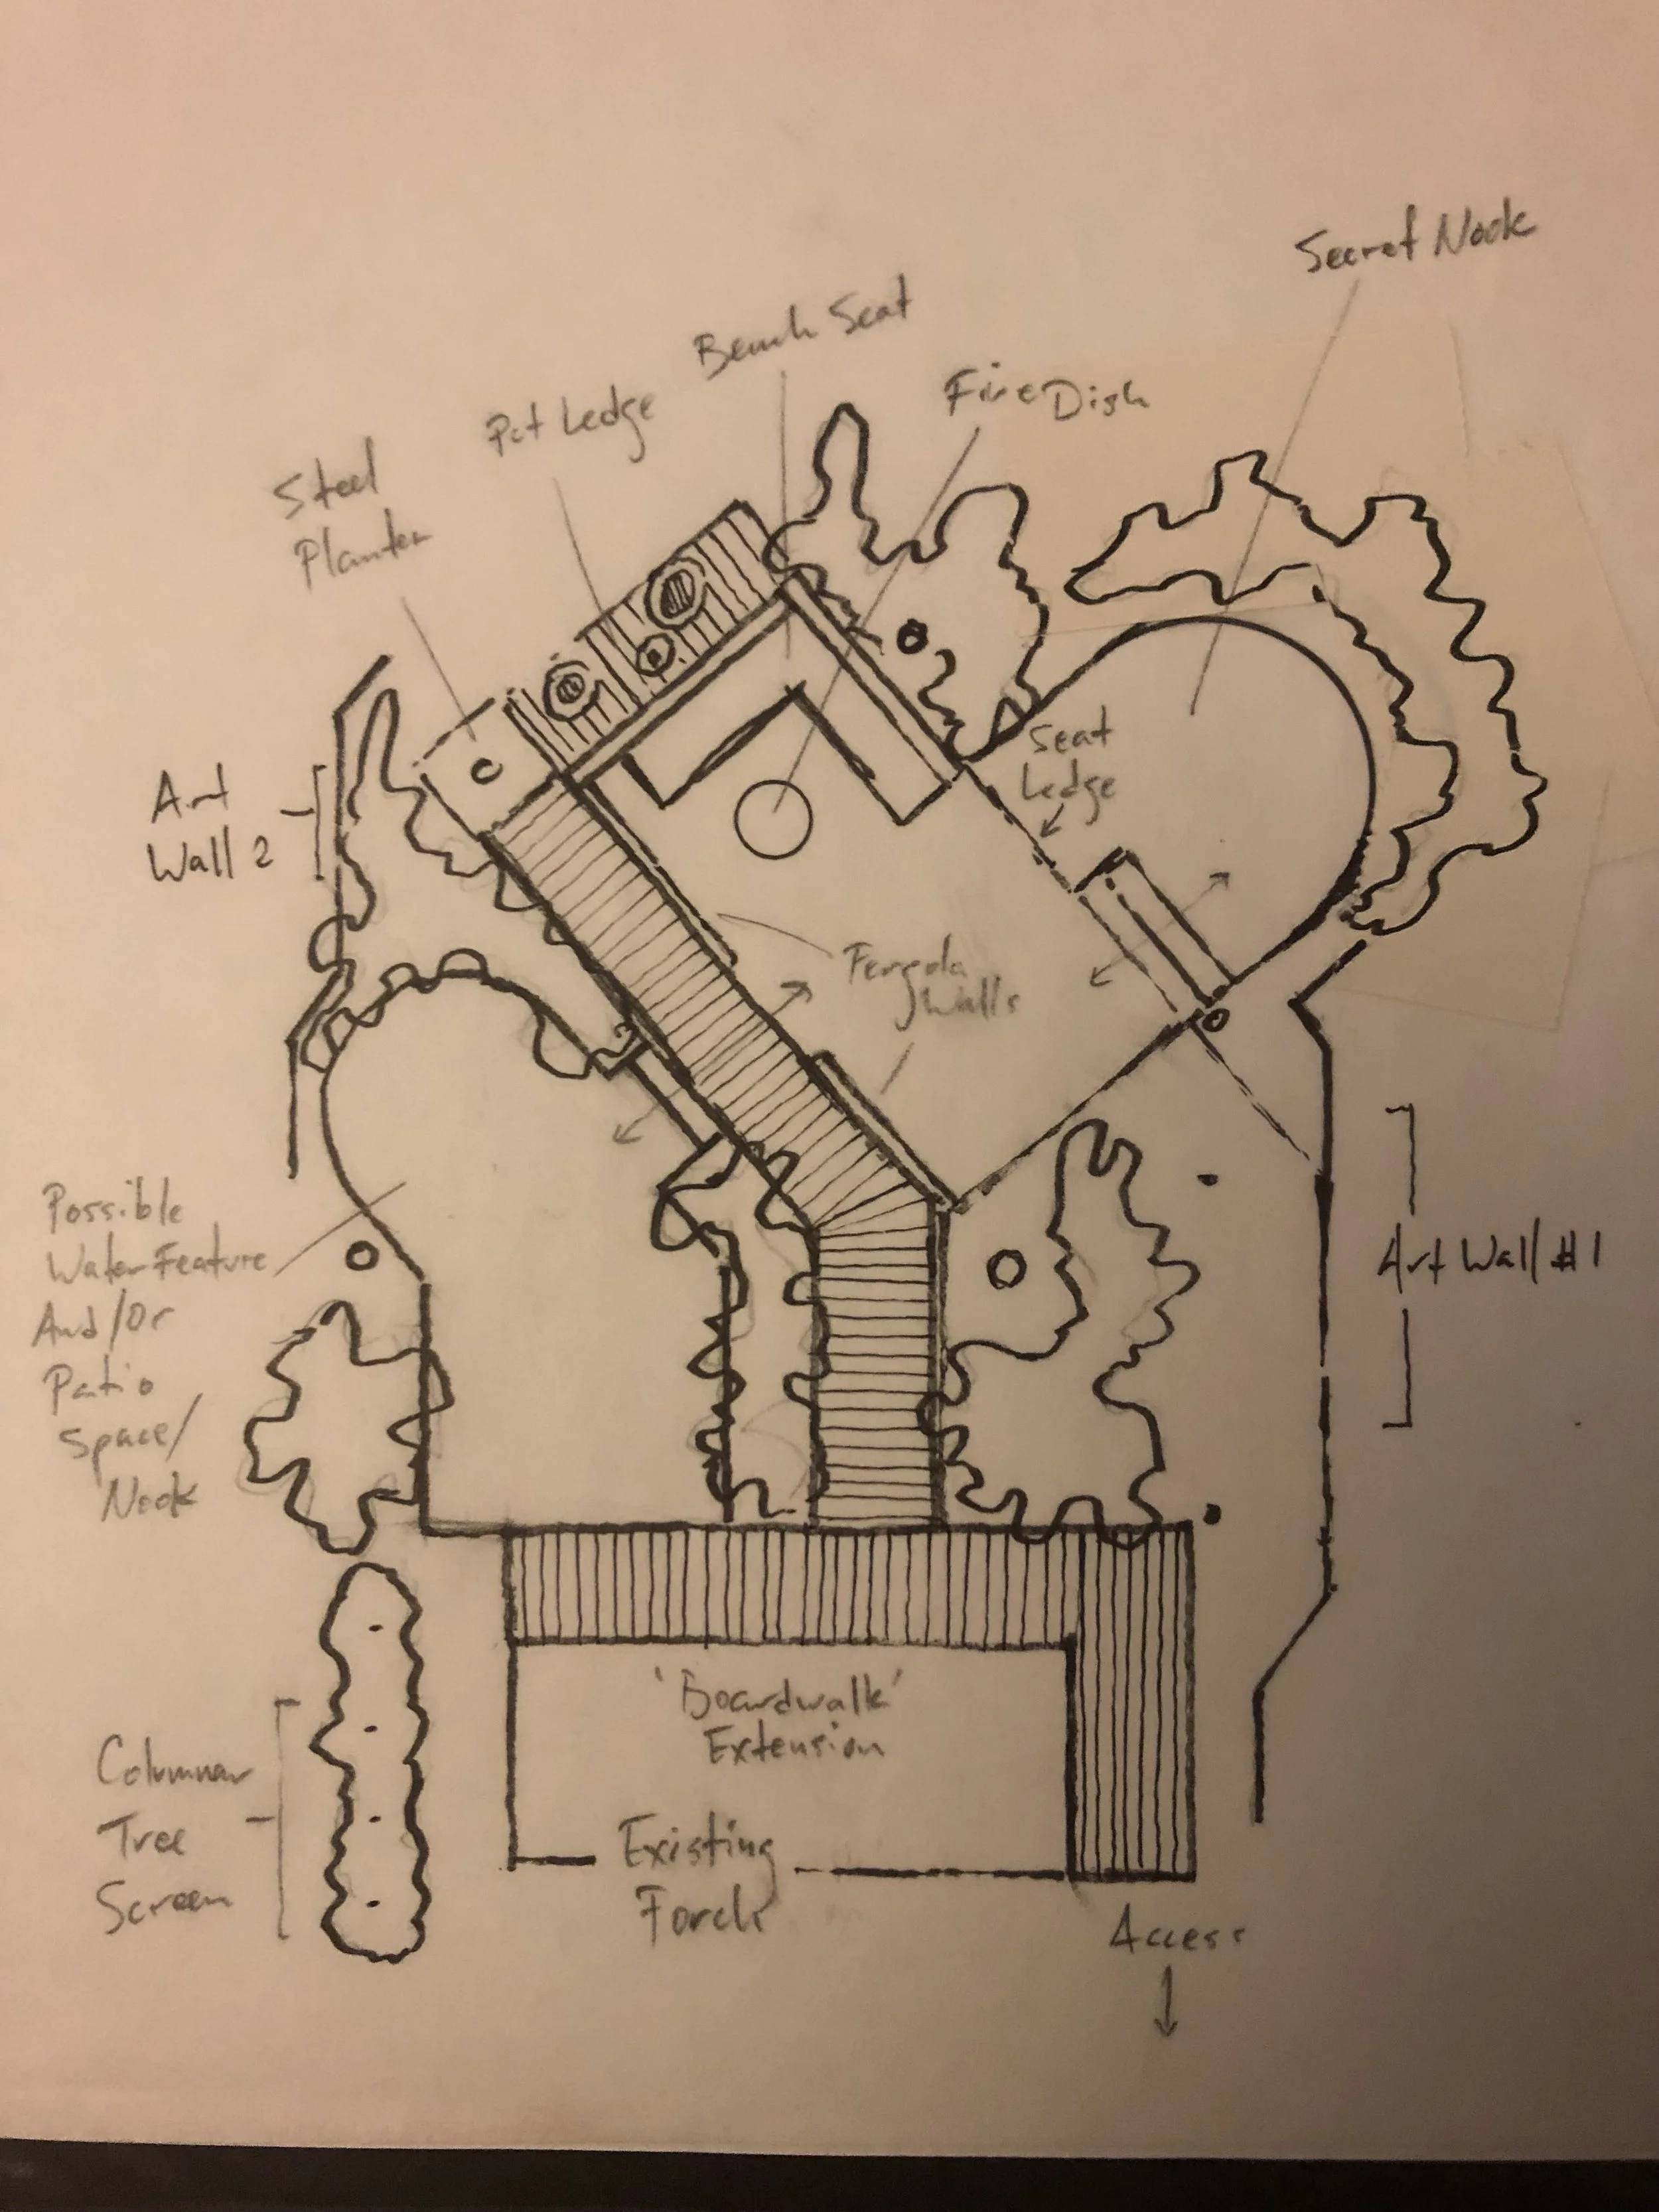 Secret Nook
Bench Seat
Fire Dish
Pot Ledge
Steel
Planter
Seat
Ledge
Art
Wall 2
Pergola
Walls
Possible
Water Feature
And/Or
Patio
Space/
Nook
Art Wall #1
'Boardwalk'
Extension
Columnar
Tree
Screen
Existing
Porch
Access